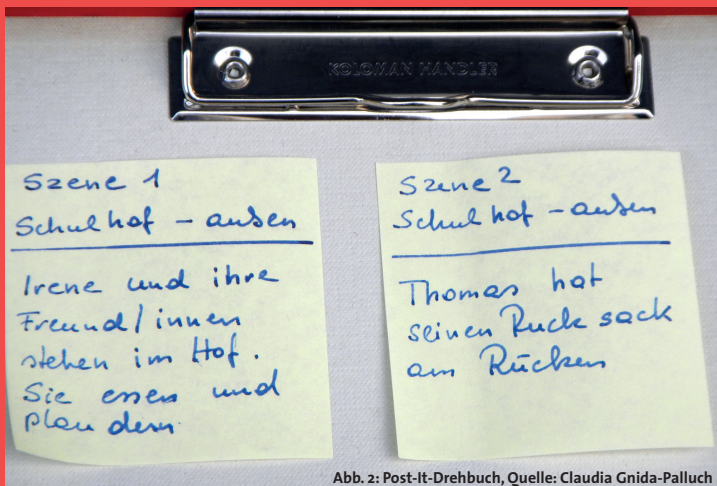 KOLOMAN HANDLER
Szene 1
Schulhof – außen
Irene und ihre
Freund/innen
stehen im Hof.
Sie essen und
plaudern
Szene 2
Schulhof – außen
Thomas hat
seinen Rucksack
am Rücken
Abb. 2: Post-It-Drehbuch, Quelle: Claudia Gnida-Palluch